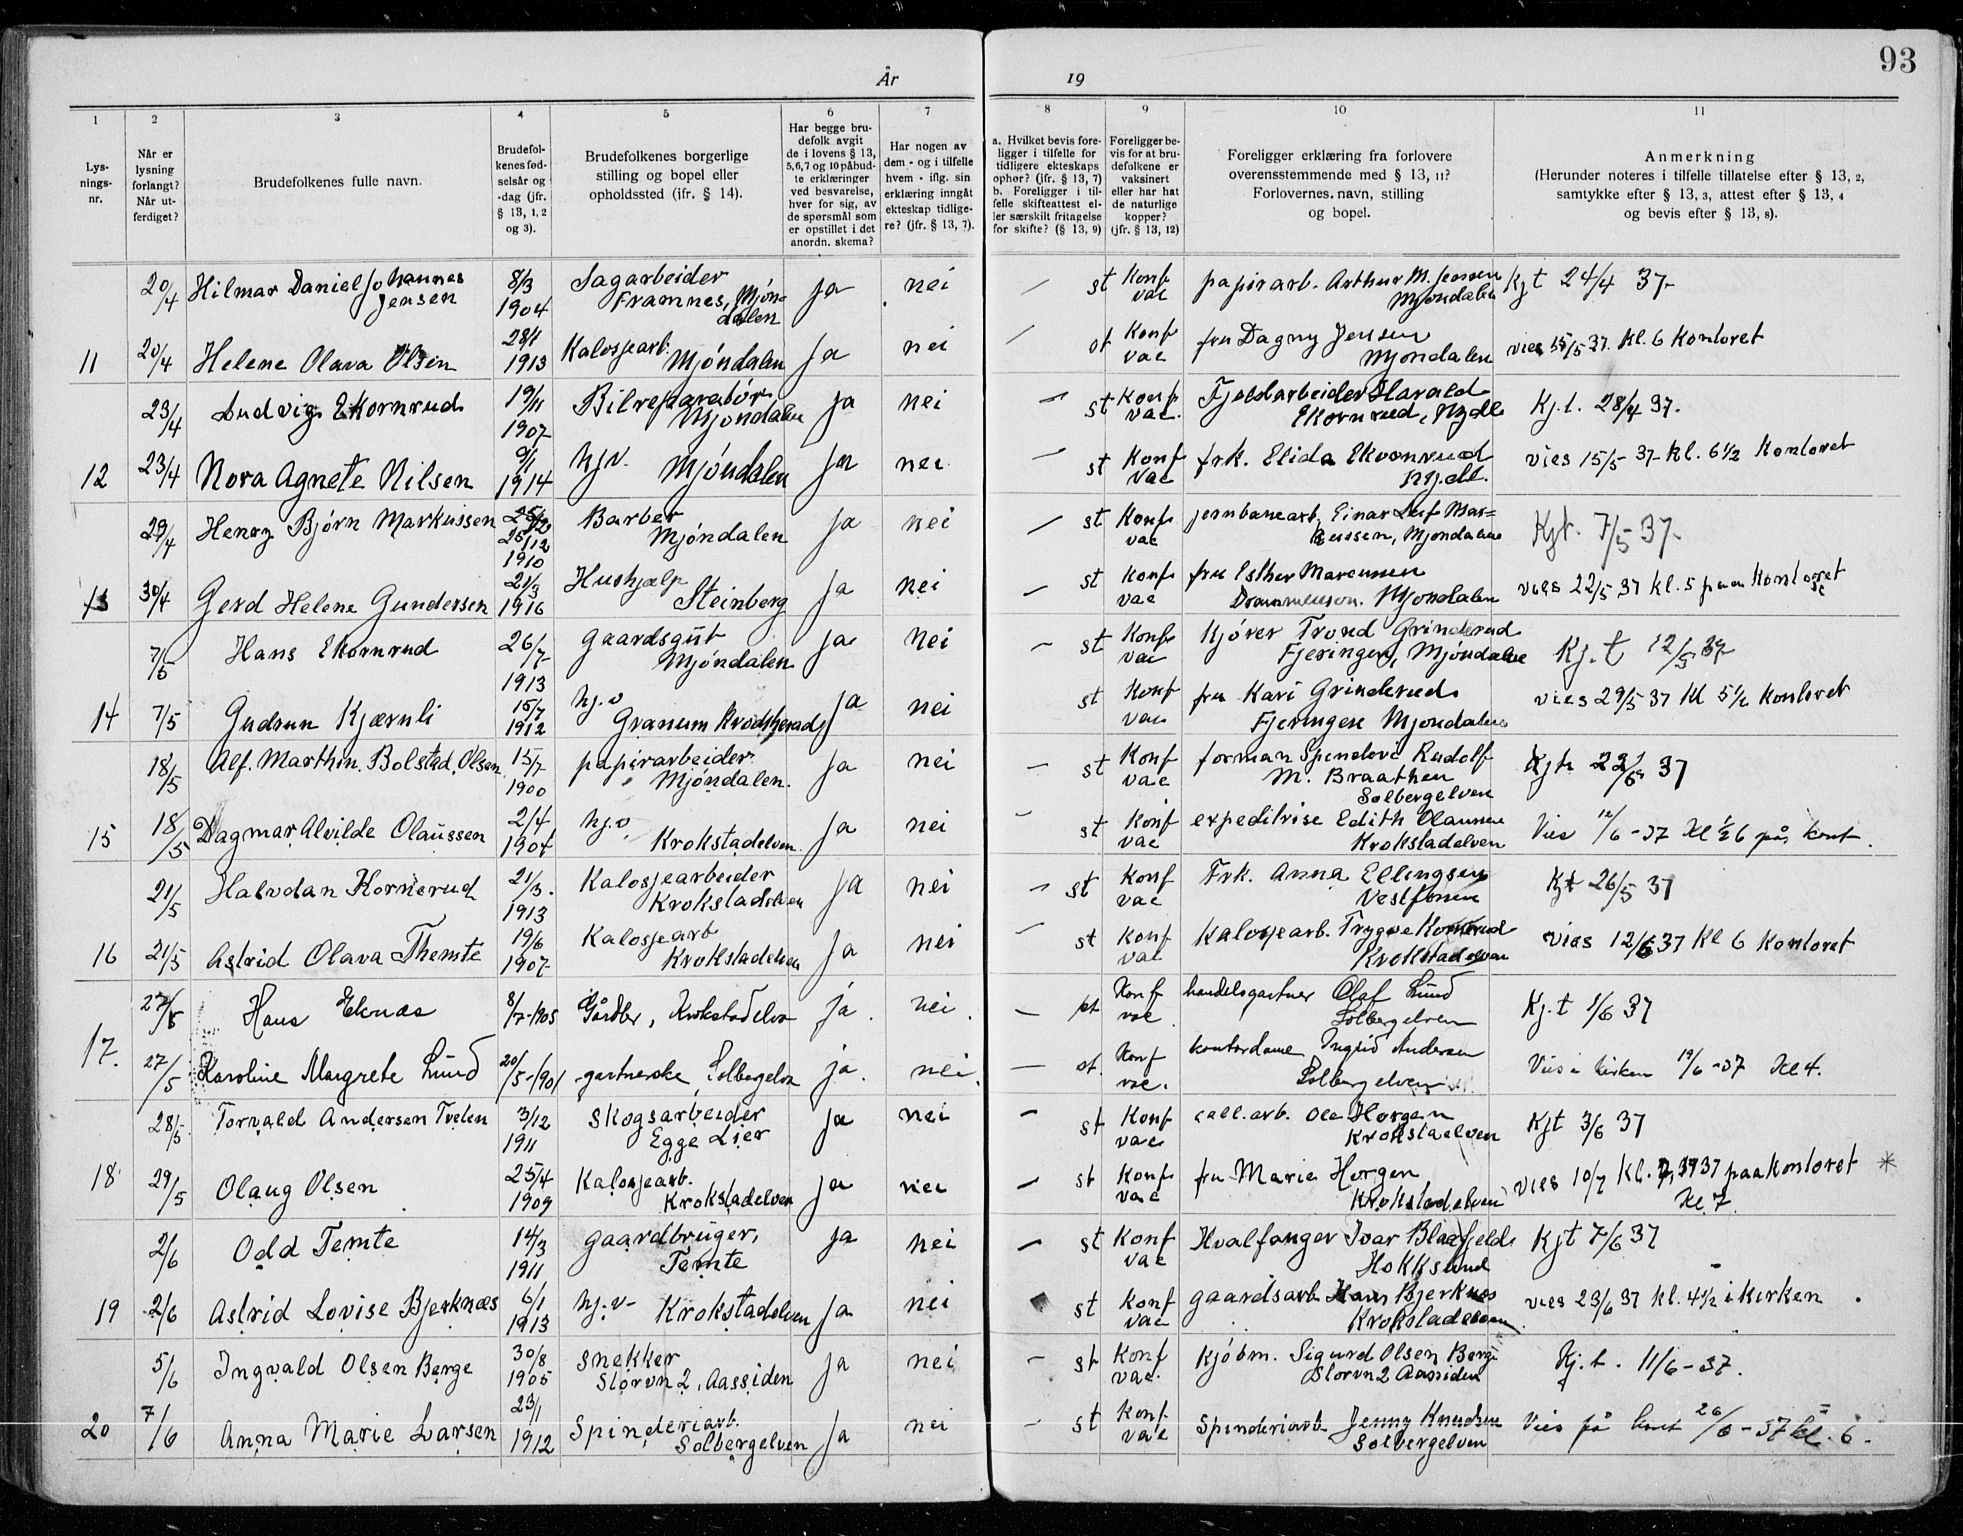 93
År
19
1
2
3
4
5
6
7
8
9
10
11
Lys-
nings-
nr.
Når er
lysning
forlangt?
Når ut-
ferdiget?
Brudefolkenes fulle navn.
Brudefol-
kenes fød-
selsår og
-dag (jfr.
§ 13, 1, 2
og 3).
Brudefolkenes borgerlige
stilling og bopel eller
opholdssted (ifr. § 14).
Har begge bru-
defolk avgit
de i lovens § 13,
5,6,7 og 10 påbud-
te erklæringer
ved besvarelse,
hver for sig, av
de spørsmål som
er opstillet i det
anordn. skema?
Har nogen av
dem - og i tilfelle
hvem - iflg. sin
erklæring inngåt
ekteskap tidlige-
re? (jfr. § 13, 7).
a. Hvilket bevis fore-
ligger i tilfelle for
tidligere ekteskaps
ophør? (jfr. § 13, 7)
b. Foreligger i til-
felle skifteattest el-
ler særskilt fritagelse
for skifte? (§ 13, 9)
Foreligger be-
vis for at bru-
defolkene er
vaksinert
eller har hat
de naturlige
kopper?
(jfr. § 13, 12)
Foreligger erklæring fra forlovere
overensstemmende med § 13, 11?
Forlovernes. navn, stilling
og bopel.
Anmerkning
(Herunder noteres i tilfelle tillatelse efter § 13, 2,
samtykke efter § 13, 3, attest efter § 13, 4
og bevis efter § 13, 8).
20/4 Hilmar Daniel Johannes 8/3 Sagarbeider ja nei — st Konf papirarb. Arthur M. Jensen Kjt 24/4 37-
Jensen 1904 Framnes, Mjøn- vac Mjøndalen
dalen
11 20/4 Helene Olava Olsen 28/1 Kalosjearb. ja nei — st Konf fru Dagny Jensen vies 15/5 37. Kl. 6 Kontoret
1913 Mjøndalen vac Mjøndalen
23/4 Ludvig Ekornrud 19/11 Bilreparatør ja nei — st Konf Fjeldarbeider Harald Kj.t. 28/4 37.
1907 Mjøndalen vac. Ekornrud, Mjdl
12 23/4 Nora Agnete Nilsen 9/1 hjv. Mjøndalen ja nei — st Konf frk. Elida Ekornrud vies 15/5 37- Kl. 6 1/2 Kontoret
1914 vac Mjdl.
29/4 Henry Bjørn Markussen 25/12 Barber ja nei — st Konf jernbanearb. Einar Leif Mar= Kjt. 7/5 37-
25/12 Mjøndalen vac kussen, Mjøndalen
1910
13 30/4 Gerd Helene Gundersen 21/3 Hushjælp ja nei — st Konf fru Esther Marcussen vies 22/5 37 kl. 5 paa Kontoret
1916 Steinberg vac Mjøndalen
7/5 Hans Ekornrud 26/7- gaardsgut ja nei — st Konf Kjører Trond Grinderud Kj.t 12/5 37-
1913 Mjøndalen vac Fjeringen, Mjøndalen
14 7/5 Gudrun Kjærnli 15/7 hj.v ja nei st Konf fru Kari Grinderud vies 29/5 37 Kl 5 1/2 Kontoret
1912 Granum Krødsherad vac Fjeringen Mjøndalen
18/5 Alf. Marthin. Bolstad. Olsen 15/7 papirarbeider ja nei — st Konf forman Rudolf Kjt 22/5 37
1900 Mjøndalen. vac M. Braathen
Solbergelven
15 18/5 Dagmar Alvilde Olaussen 2/4 hj.v ja nei — st Konf expeditrise Edith Olaussen Vies 12/6 -37 Kl 1/2 6 på kont.
1904 Krokstadelven vac Krokstadelven
21/5 Halvdan Kornerud 21/3. Kalosjearbeider ja nei — st Konf Frk. Anna Ellingsen Kjt 26/5 37
1913 Krokstadelven vac Vestfossen
16 21/5 Astrid Olava Themte 19/6 Kalosjearb ja nei — st Konf Kalosjearb. Trygve Kornerud vies 12/6 37 Kl 6 Kontoret
1907 Krokstadelven vac Krokstadelven
27/5 Hans Eknæs 8/7-1905 Gårdbr, Krokstadelva ja. nei. — st Konf handelsgartner Olaf Lund Kj.t 1/6 37
vac Solbergelven
17. 27/5 Karoline Margrete Lund 20/5-1901 gartnerske Solbergelva ja. nei. — st. Konf kontordame Ingrid Andersen Vies i kirken 19/6 -37 Kl 4.
vac. Solbergelven
28/5. Torvald Andersen Tvelen 3/12 Skogsarbeider ja nei — st Konf cell.arb. Ole Horgen Kjt 3/6 37
1911 Egge Lier vac Krokstaelven
18 29/5 Olaug Olsen 25/4 Kalosjearb. ja nei — st Konf fru Marie Horgen vies 10/7 Kl. 37 paa Kontoret *
1909 Krokstadelven vac Krokstadelven Kl. 7
2/6 Odd Temte 14/3 gaardbruger, ja nei — st Konf Hvalfanger Ivar Blaafjeld Kjt 7/6 37
1911 Temte vac Hokksund
19 2/6 Astrid Lovise Bjerknæs 6/1 hj.v- Krokstadelven ja nei st Konf gaardsarb Hans Bjerknes vies 23/6 37 kl. 4 1/2 i Kirken
1913 vac Krokstadelven
5/6 Ingvald Olsen Berge 30/8 Snekker ja nei — st Konf Kjøbm. Sigurd Olsen Berge Kj.t. 11/6-37.
1905 Storvn 2, Aassiden vac. Storvn 2 Aassiden
20 7/6 Anna Marie Larsen 23/1 Spinderiarb. ja nei — st Konf Spinderiarb Jenny Knudsen Vies på kont 26/6 -37 kl. 6.
1912 Solbergelven vac Solbergelven